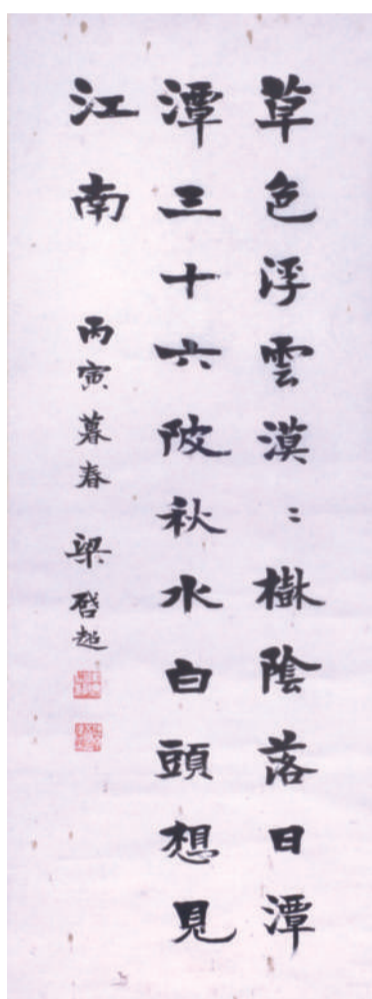 草色浮雲漠〻樹陰落日潭
潭三十六陂秋水白頭想見
江南
丙寅暮春 梁啓超